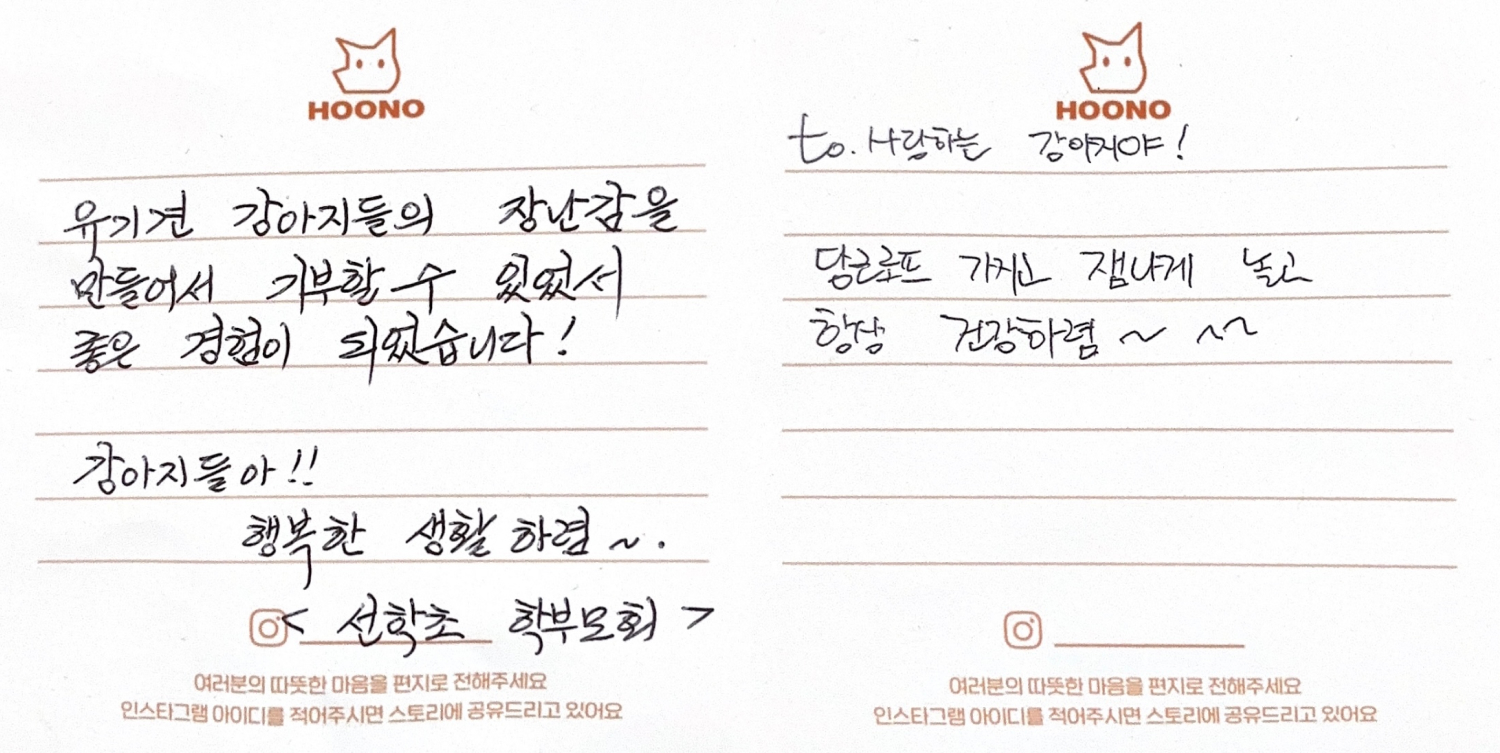 HOONO
유기견 강아지들의 장난감을
만들어서 기부할 수 있었서
좋은 경험이 되었습니다!
강아지들아!!
행복한 생활 하렴~.
< 선학초 학부모회 >
여러분의 따뜻한 마음을 편지로 전해주세요
인스타그램 아이디를 적어주시면 스토리에 공유드리고 있어요
HOONO
to. 사랑하는 강아지야!
당근로프 가지고 잼나게 놀고
항상 건강하렴~ ^^
여러분의 따뜻한 마음을 편지로 전해주세요
인스타그램 아이디를 적어주시면 스토리에 공유드리고 있어요